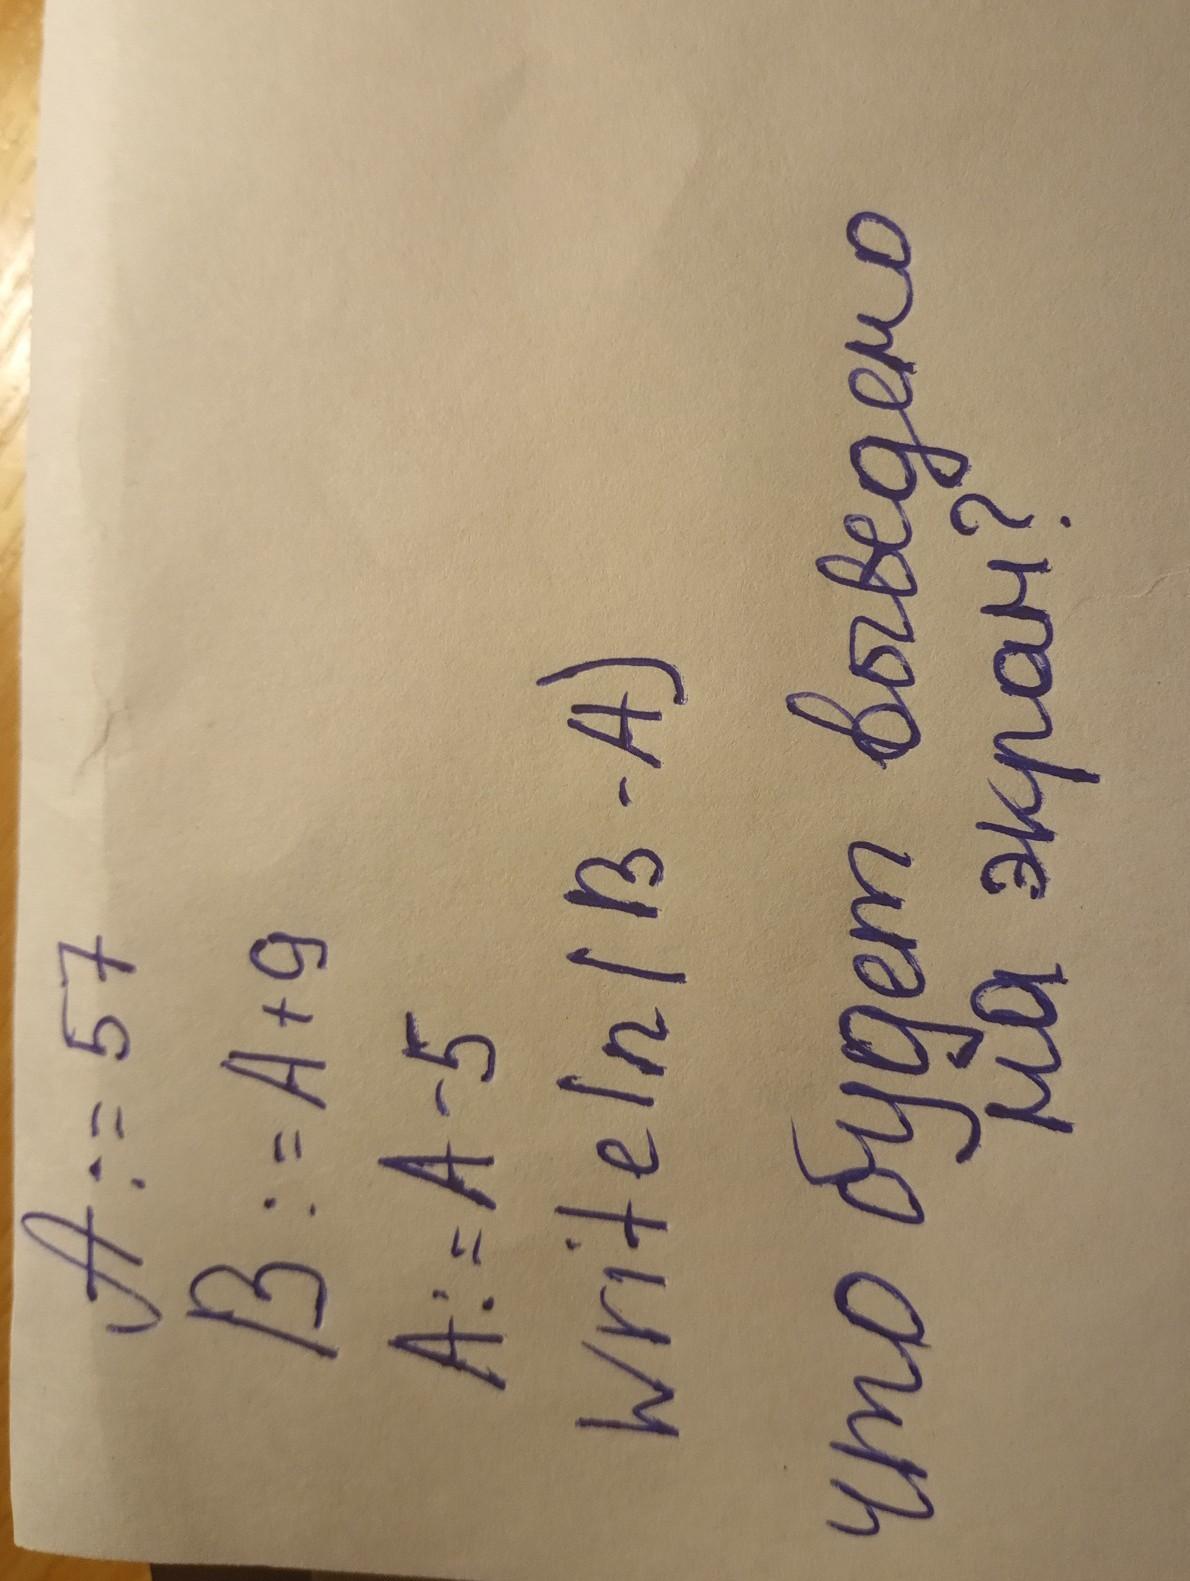 A:=57
B:=A+9
A:=A-5
Writeln(B-A)
что будет выведено
на экран?